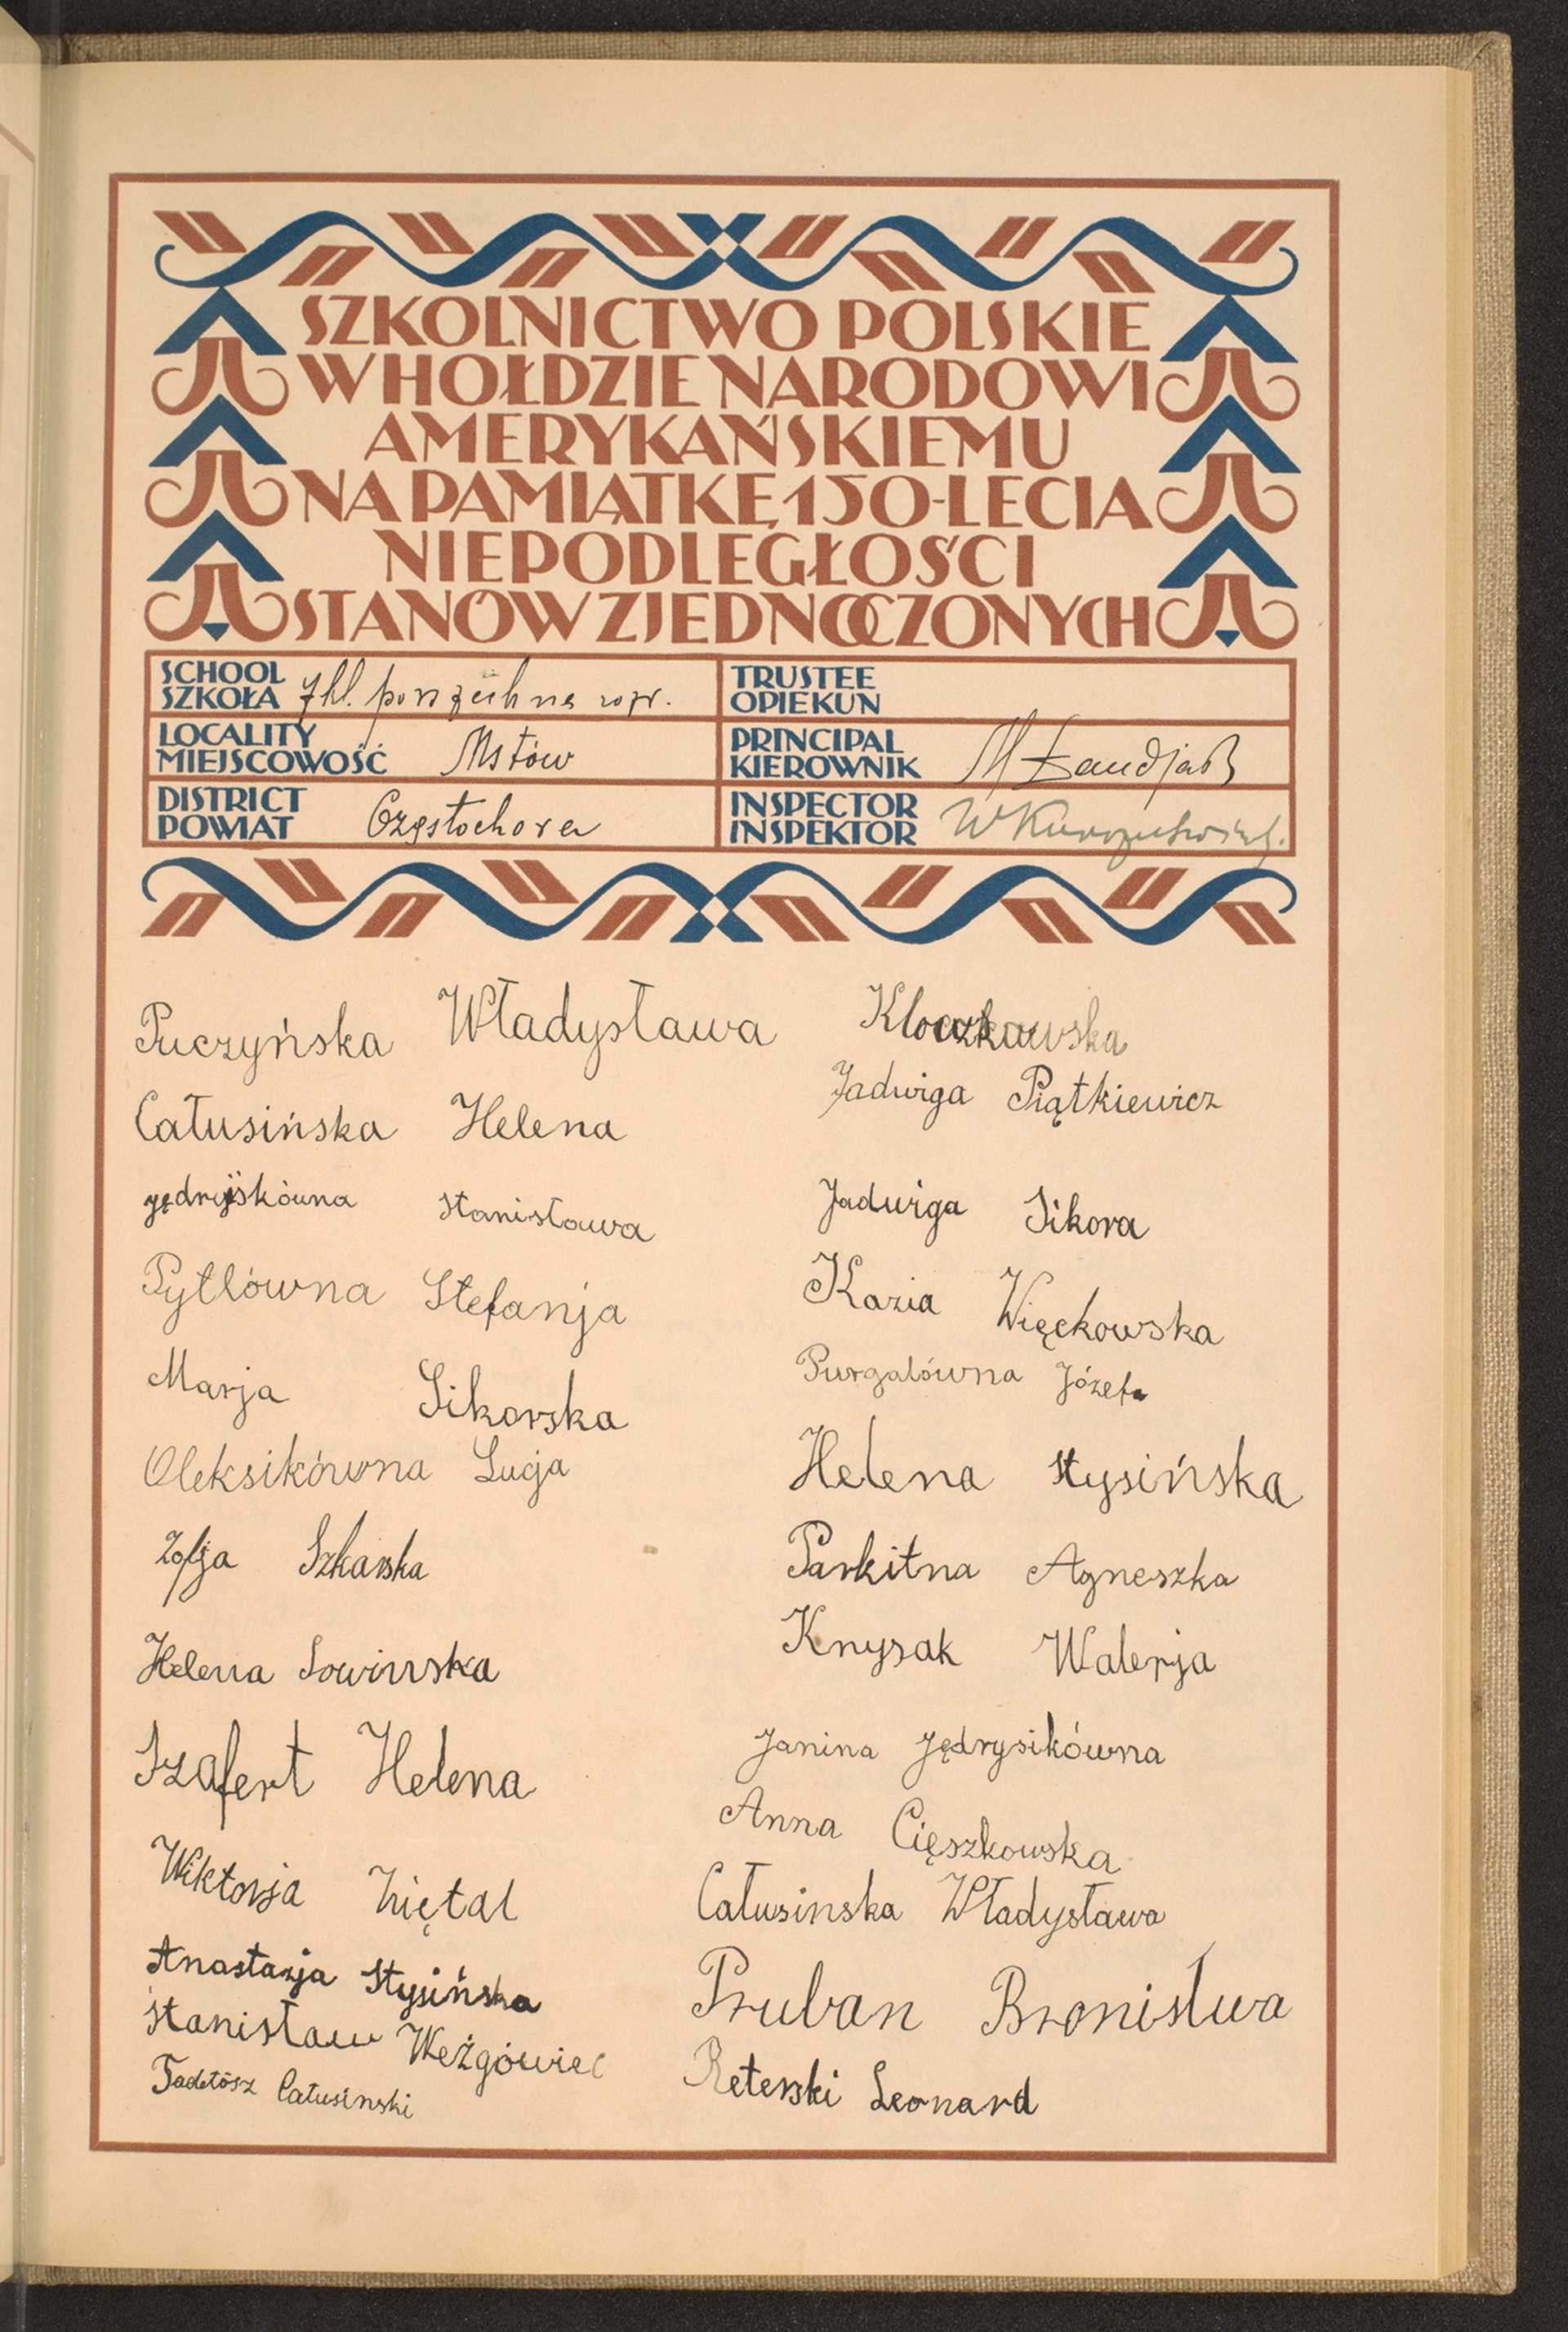 SZKOLNICTWO POLSKIE
W HOŁDZIE NARODOWI
AMERYKAŃSKIEMU
NA PAMIĄTKĘ 150-LECIA
NIEPODLEGŁOŚCI
STANÓW ZJEDNOCZONYCH
SCHOOL
SZKOŁA 7 kl. powszechna
TRUSTEE
OPIEKUN
LOCALITY
MIEJSCOWOŚĆ Mstów
PRINCIPAL
KIEROWNIK M
DISTRICT
POWIAT Częstochowa
INSPECTOR
INSPEKTOR W
Puczyńska Władysława
Całusińska Helena
Stanisława
Pytlówna Stefanja
Marja Sikorska
Oleksikówna Lucja
Zofja Szkarska
Helena Sowinska
Szafert Helena
Wiktorja Ziętal
Anastazja Stysińska
Stanisław Weżgówiec
Tadetósz Całusinski
Kloczkowska
Jadwiga Piątkiewicz
Jadwiga Sikora
Kazia Więckowska
Purgalówna Józefa
Helena Stysińska
Parkitna Agneszka
Knysak Walerja
Janina Jędrysikówna
Anna Cięszkowska
Całusinska Władysława
Pruban Bronistwa
Reterski Leonard